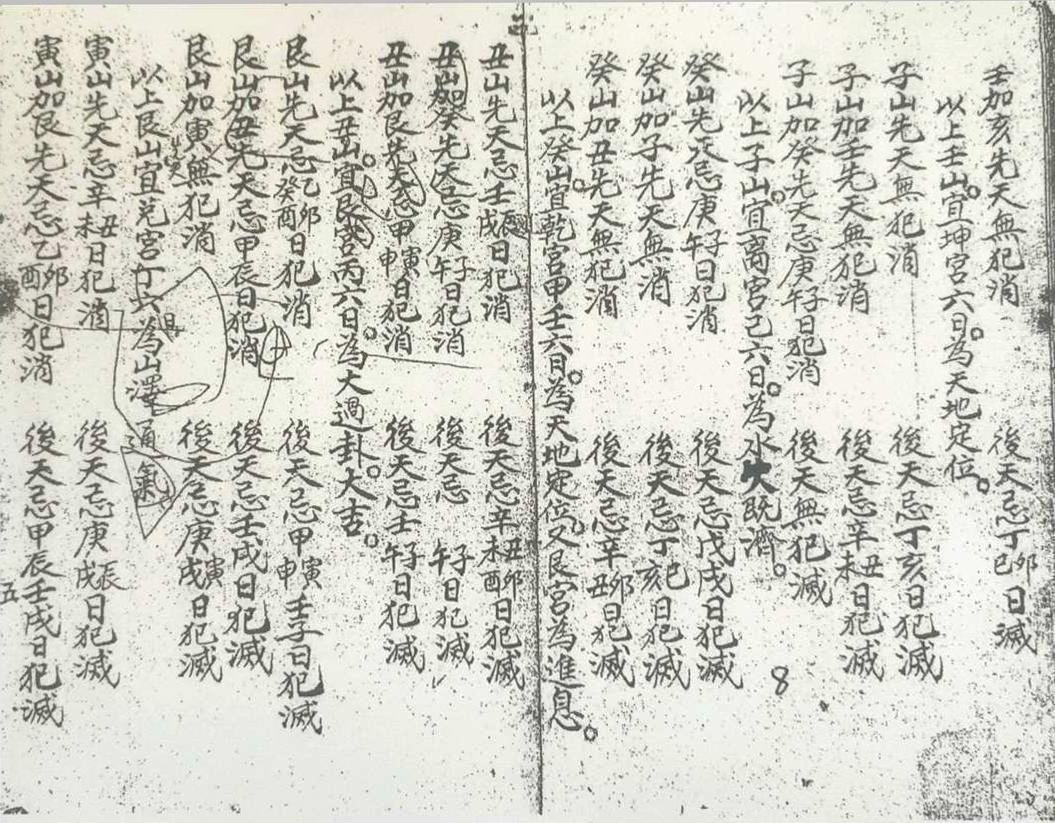 壬加亥先天無犯消　後天忌丁卯巳日滅
以上壬山宜坤宮六日為天地定位。
子山先天無犯消　後天忌丁亥日犯滅
子山加壬先天無犯消　後天忌辛丑未日犯滅
子山加癸先天忌庚子午日犯消　後天無犯滅
以上子山宜离宮己六日。為水火既濟。
癸山先天忌庚子午日犯消　後天忌戊戌日犯滅
癸山加子先天無消　後天忌丁巳亥日犯滅
癸山加丑先天無犯消　後天忌辛卯丑日犯滅
以上癸山宜乾宮甲壬六日。為天地定位又艮宮為進息。
8
丑山先天忌壬辰戌日犯消　後天忌辛丑未卯酉日犯滅
丑山加癸先天忌庚子午日犯消　後天忌子午日犯滅
丑山加艮先天忌甲寅申日犯消　後天忌壬子午日犯滅
以上丑山宜艮宮丙六日。為大過卦。大吉。
艮山先天忌乙卯癸酉日犯消　後天忌甲寅申壬子日犯滅
艮山加丑先天忌甲辰日犯消　後天忌壬戌日犯滅
艮山加寅無犯消　後天忌庚寅戌日犯滅
以上艮山宜兌宮丁六日為山澤通氣
寅山先天忌辛丑未日犯消　後天忌庚辰戌日犯滅
寅山加艮先天忌乙卯酉日犯消　後天忌甲辰壬戌日犯滅
五